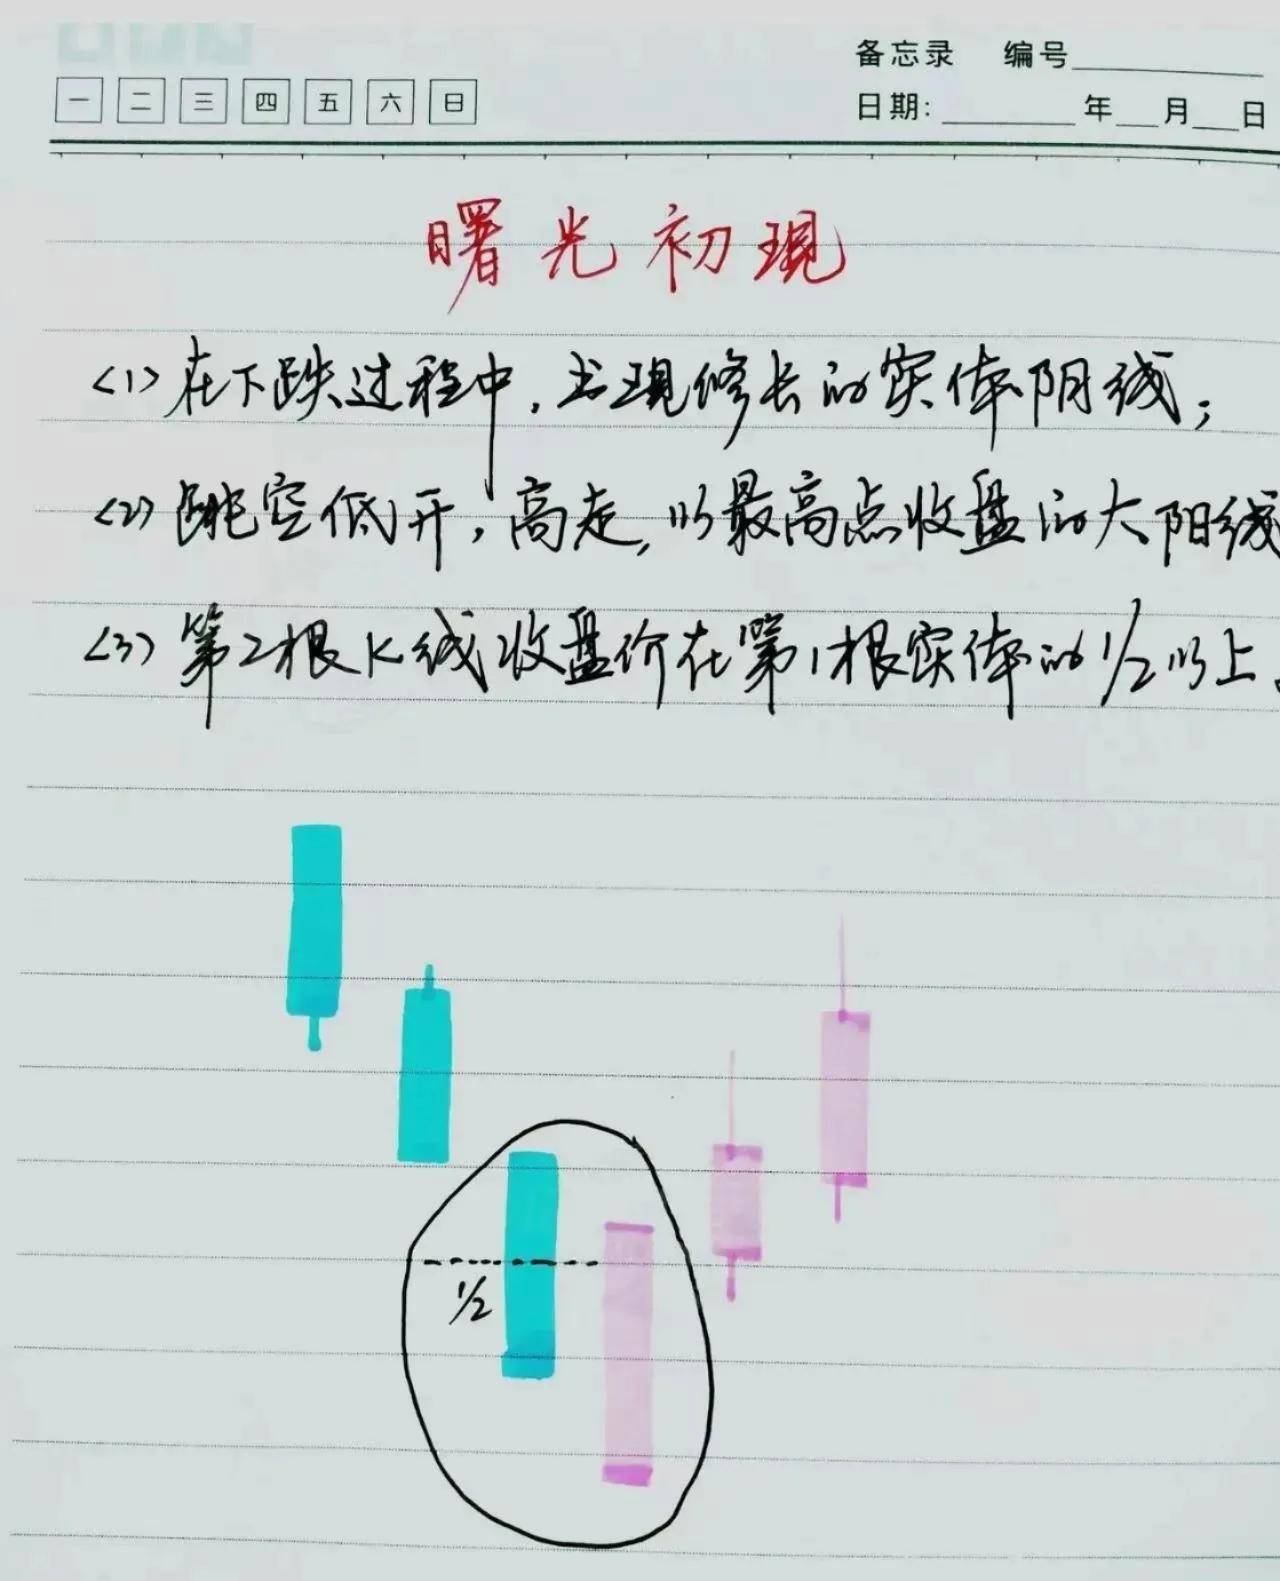 备忘录 编号
一 二 三 四 五 六 日
日期: 年 月 日
曙光初现
(1) 在下跌过程中，出现修长的实体阴线；
(2) 跳空低开，高走，以最高点收盘的大阳线
(3) 第2根K线收盘价在第1根实体的1/2以上。
1/2